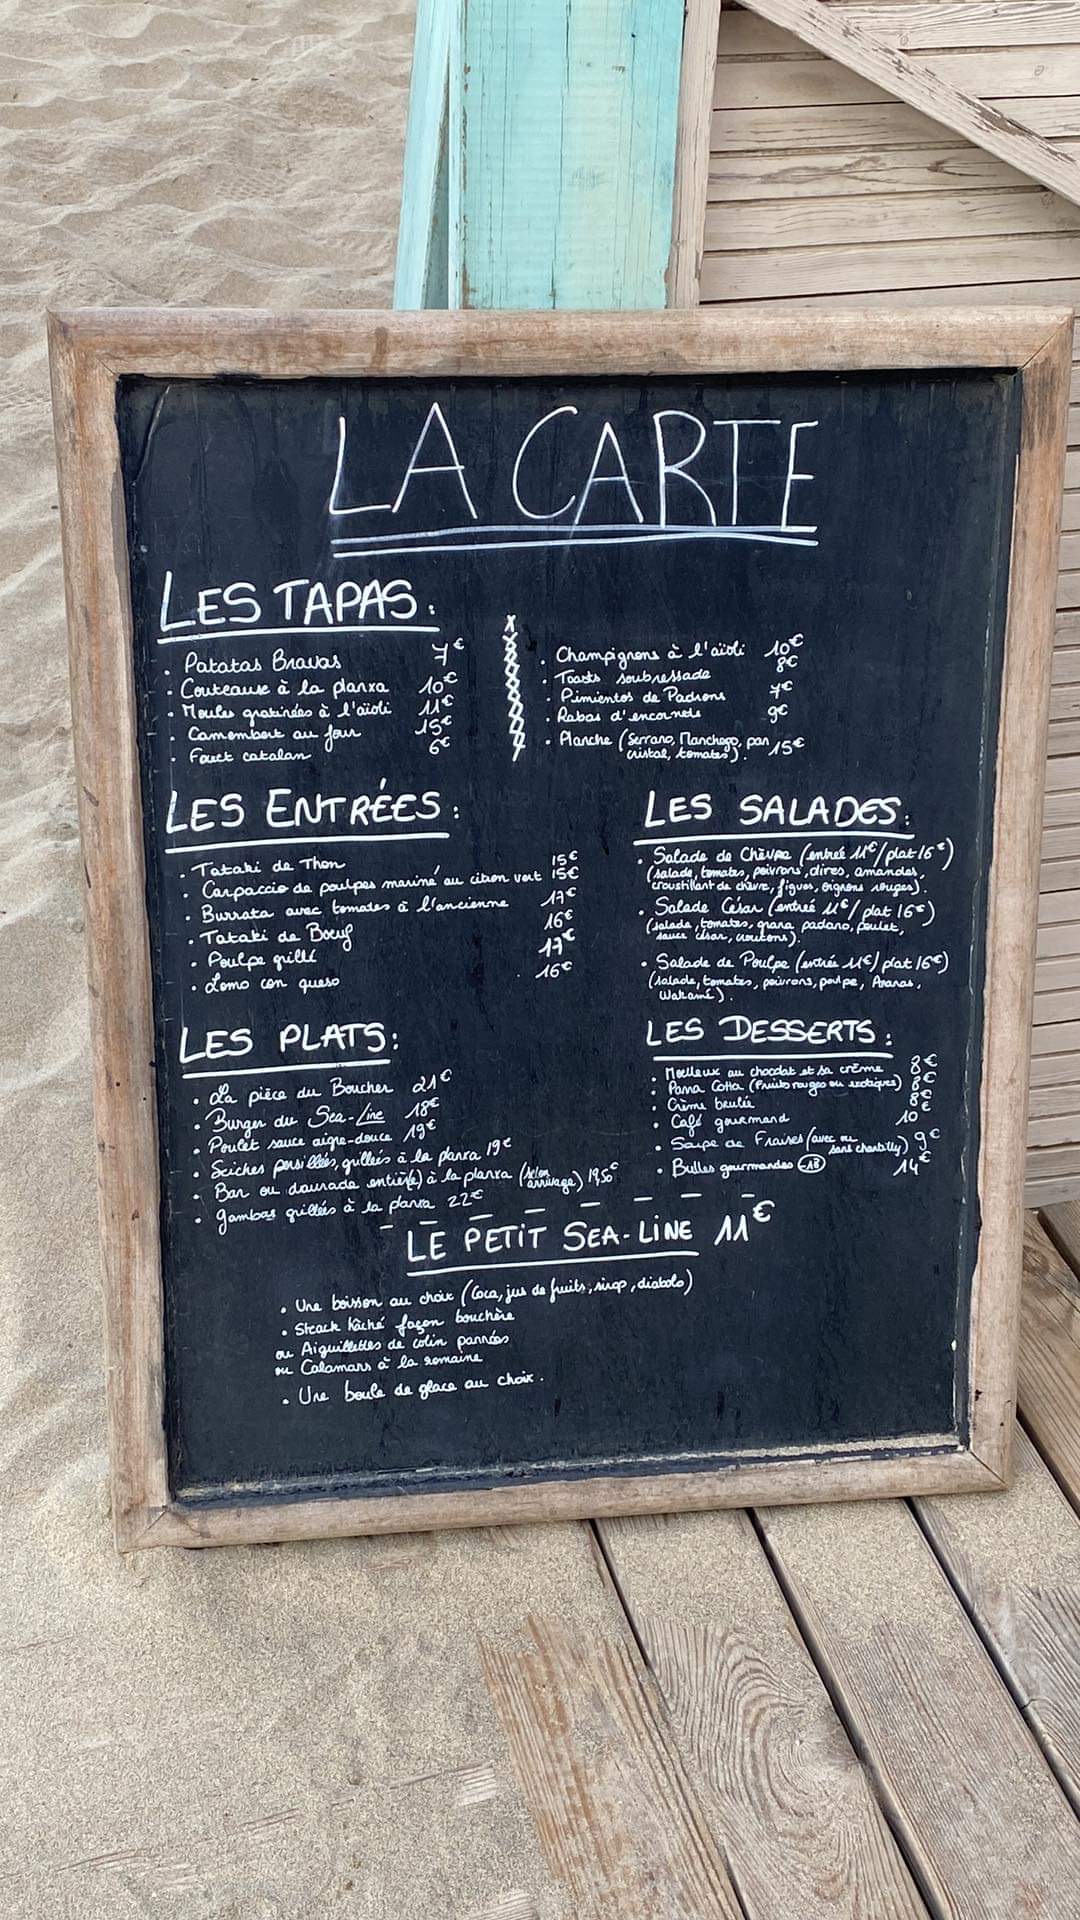 LA CARTE
LES TAPAS:
. Patatas Bravas 7€
. Couteaux à la planxa 10€
. Moules gratinées à l'aïoli 11€
. Camembert au four 15€
. Fouet catalan 6€
. Champignons à l'aïoli 10€
. Toasts soubressade 8€
. Pimientos de Padrons 7€
. Rabas d'encornets 9€
. Planche (Serrano, Manchego, pan 15€
cristal, tomates).
LES ENTRÉES:
. Tataki de Thon 15€
. Carpaccio de poulpes mariné au citron vert 15€
. Burrata avec tomates à l'ancienne 17€
. Tataki de Bœuf 16€
. Poulpe grillé 17€
. Lomo con queso 16€
LES SALADES:
. Salade de Chèvre (entrée 11€/plat 16€)
(salade, tomates, poivrons, olives, amandes,
croustillant de chèvre, figues, oignons rouges).
. Salade César (entrée 11€/ plat 16€)
(salade, tomates, grana padano, poulet,
sauce césar, croutons).
. Salade de Poulpe (entrée 11€/plat 16€)
(salade, tomates, poivrons, poulpe, Ananas,
Wakamé).
LES PLATS:
. La pièce du Boucher 21€
. Burger du Sea-Line 18€
. Poulet sauce aigre-douce 19€
. Seiches persillées, grillées à la planxa 19€
. Bar ou daurade entièr(e) à la planxa (selon arrivage) 19,50€
. Gambas grillées à la planxa 22€
LES DESSERTS:
. Moelleux au chocolat et sa crème 8€
. Panna Cotta (Fruits rouges ou exotiques) 8€
. Crème brulée 8€
. Café gourmand 10€
. Soupe de Fraises (avec ou sans chantilly) 9€
. Bulles gourmandes -18 14€
LE PETIT SEA-LINE 11€
. Une boisson au choix (Coca, jus de fruits, sirop, diabolo)
. Steack haché façon bouchère
ou Aiguillettes de colin pannées
ou Calamars à la romaine
. Une boule de glace au choix.